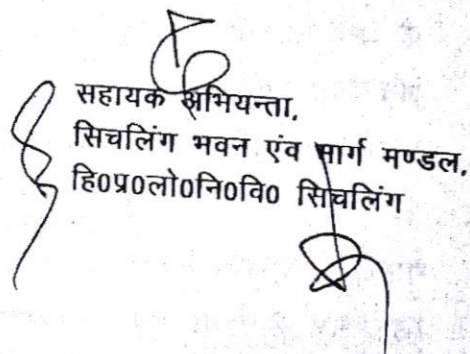 सहायक अभियन्ता,
सिचलिंग भवन एंव मार्ग मण्डल,
हि0प्र0लो0नि0वि0 सिचलिंग